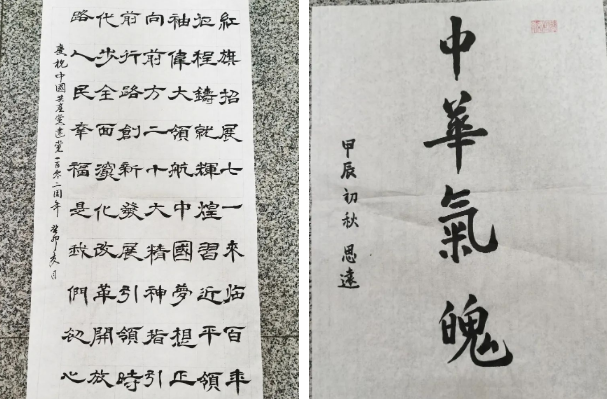 紅旗招展七一來临百年
征程鑄就輝煌習近平領
袖偉大領航中國夢想正
向前方二十大精神指引
前行路創新發展引領時
代步全面深化改革開放
路人民幸福是我們初心
慶祝中國共產黨建黨一百零二周年 癸卯夏日
中華氣魄
甲辰初秋 思遠